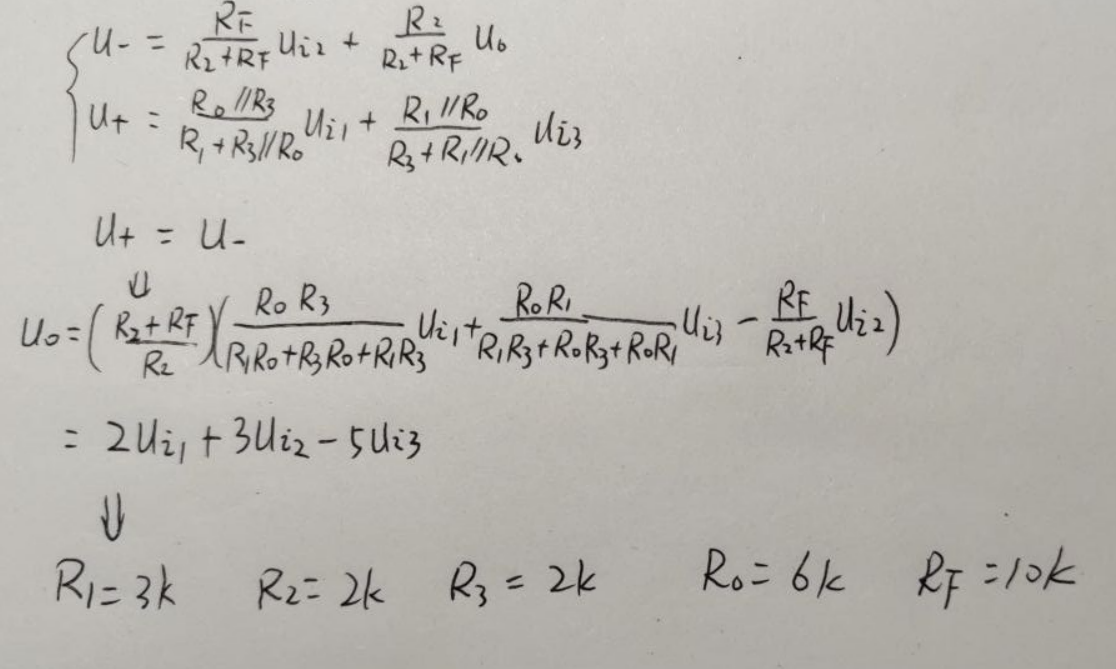 U- = RF/(R2+RF) Ui2 + R2/(R2+RF) Uo
U+ = Ro//R3/(R1+R3//Ro) Ui1 + R1//Ro/(R3+R1//R.) Ui3
U+ = U-
⇓
Uo = ((R2+RF)/R2)(RoR3/(R1Ro+R3Ro+R1R3) Ui1 + RoR1/(R1R3+RoR3+RoR1) Ui3 - RF/(R2+RF) Ui2)
= 2Ui1 + 3Ui2 - 5Ui3
⇓
R1=3k R2=2k R3=2k Ro=6k RF=10k